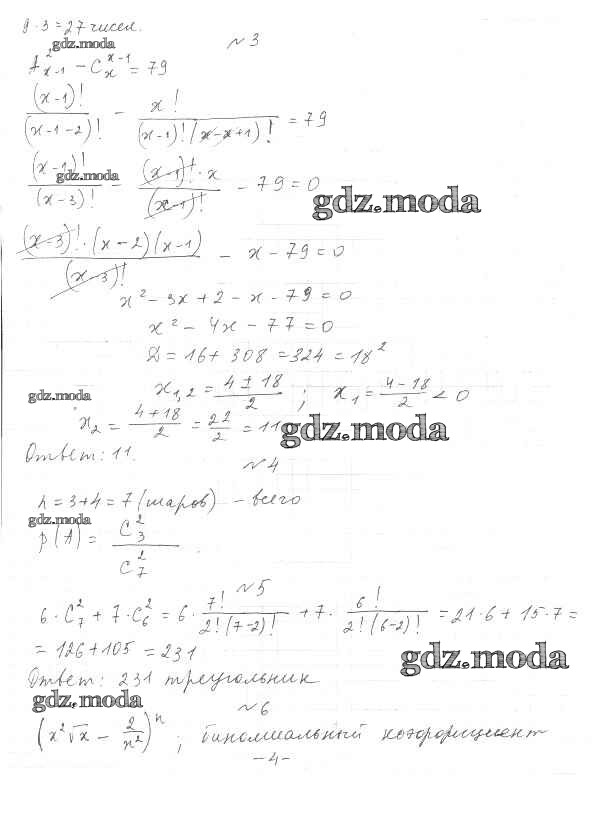 9·3=27 чисел.
gdz.moda
№3
A²ₓ₋₁ − Cₓˣ⁻¹ = 79
(x-1)!/(x-1-2)! − x!/((x-1)!(x-x+1)!) = 79
gdz.moda
(x-1)!/(x-3)! − ((x-1)!·x)/(x-1)! − 79 = 0
gdz.moda
((x-3)!·(x-2)(x-1))/(x-3)! − x − 79 = 0
x² − 3x + 2 − x − 79 = 0
x² − 4x − 77 = 0
Д = 16 + 308 = 324 = 18²
gdz.moda
x₁,₂ = (4 ± 18)/2 ; x₁ = (4-18)/2 < 0
x₂ = (4+18)/2 = 22/2 = 11
gdz.moda
Ответ: 11.
№4
n = 3+4 = 7 (шаров) − всего
gdz.moda
p(A) = C₃²/C₇²
№5
6·C₇² + 7·C₆² = 6·7!/(2!(7-2)!) + 7·6!/(2!(6-2)!) = 21·6 + 15·7 =
= 126+105 = 231
gdz.moda
Ответ: 231 треугольник
gdz.moda
№6
(x²√x − 2/x²)ⁿ ; биномиальный коэффициент
-4-